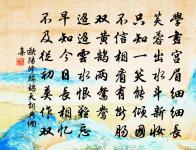 學畫宮眉細細長
芙蓉出水斗新妝
只知一笑能傾國
不信相看有斷腸
雙黃鵠兩鴛鴦
迢迢雲水恨難忘
早知今日長相憶
不及從初莫作雙
歐陽修鷓鴣天詞典網
集